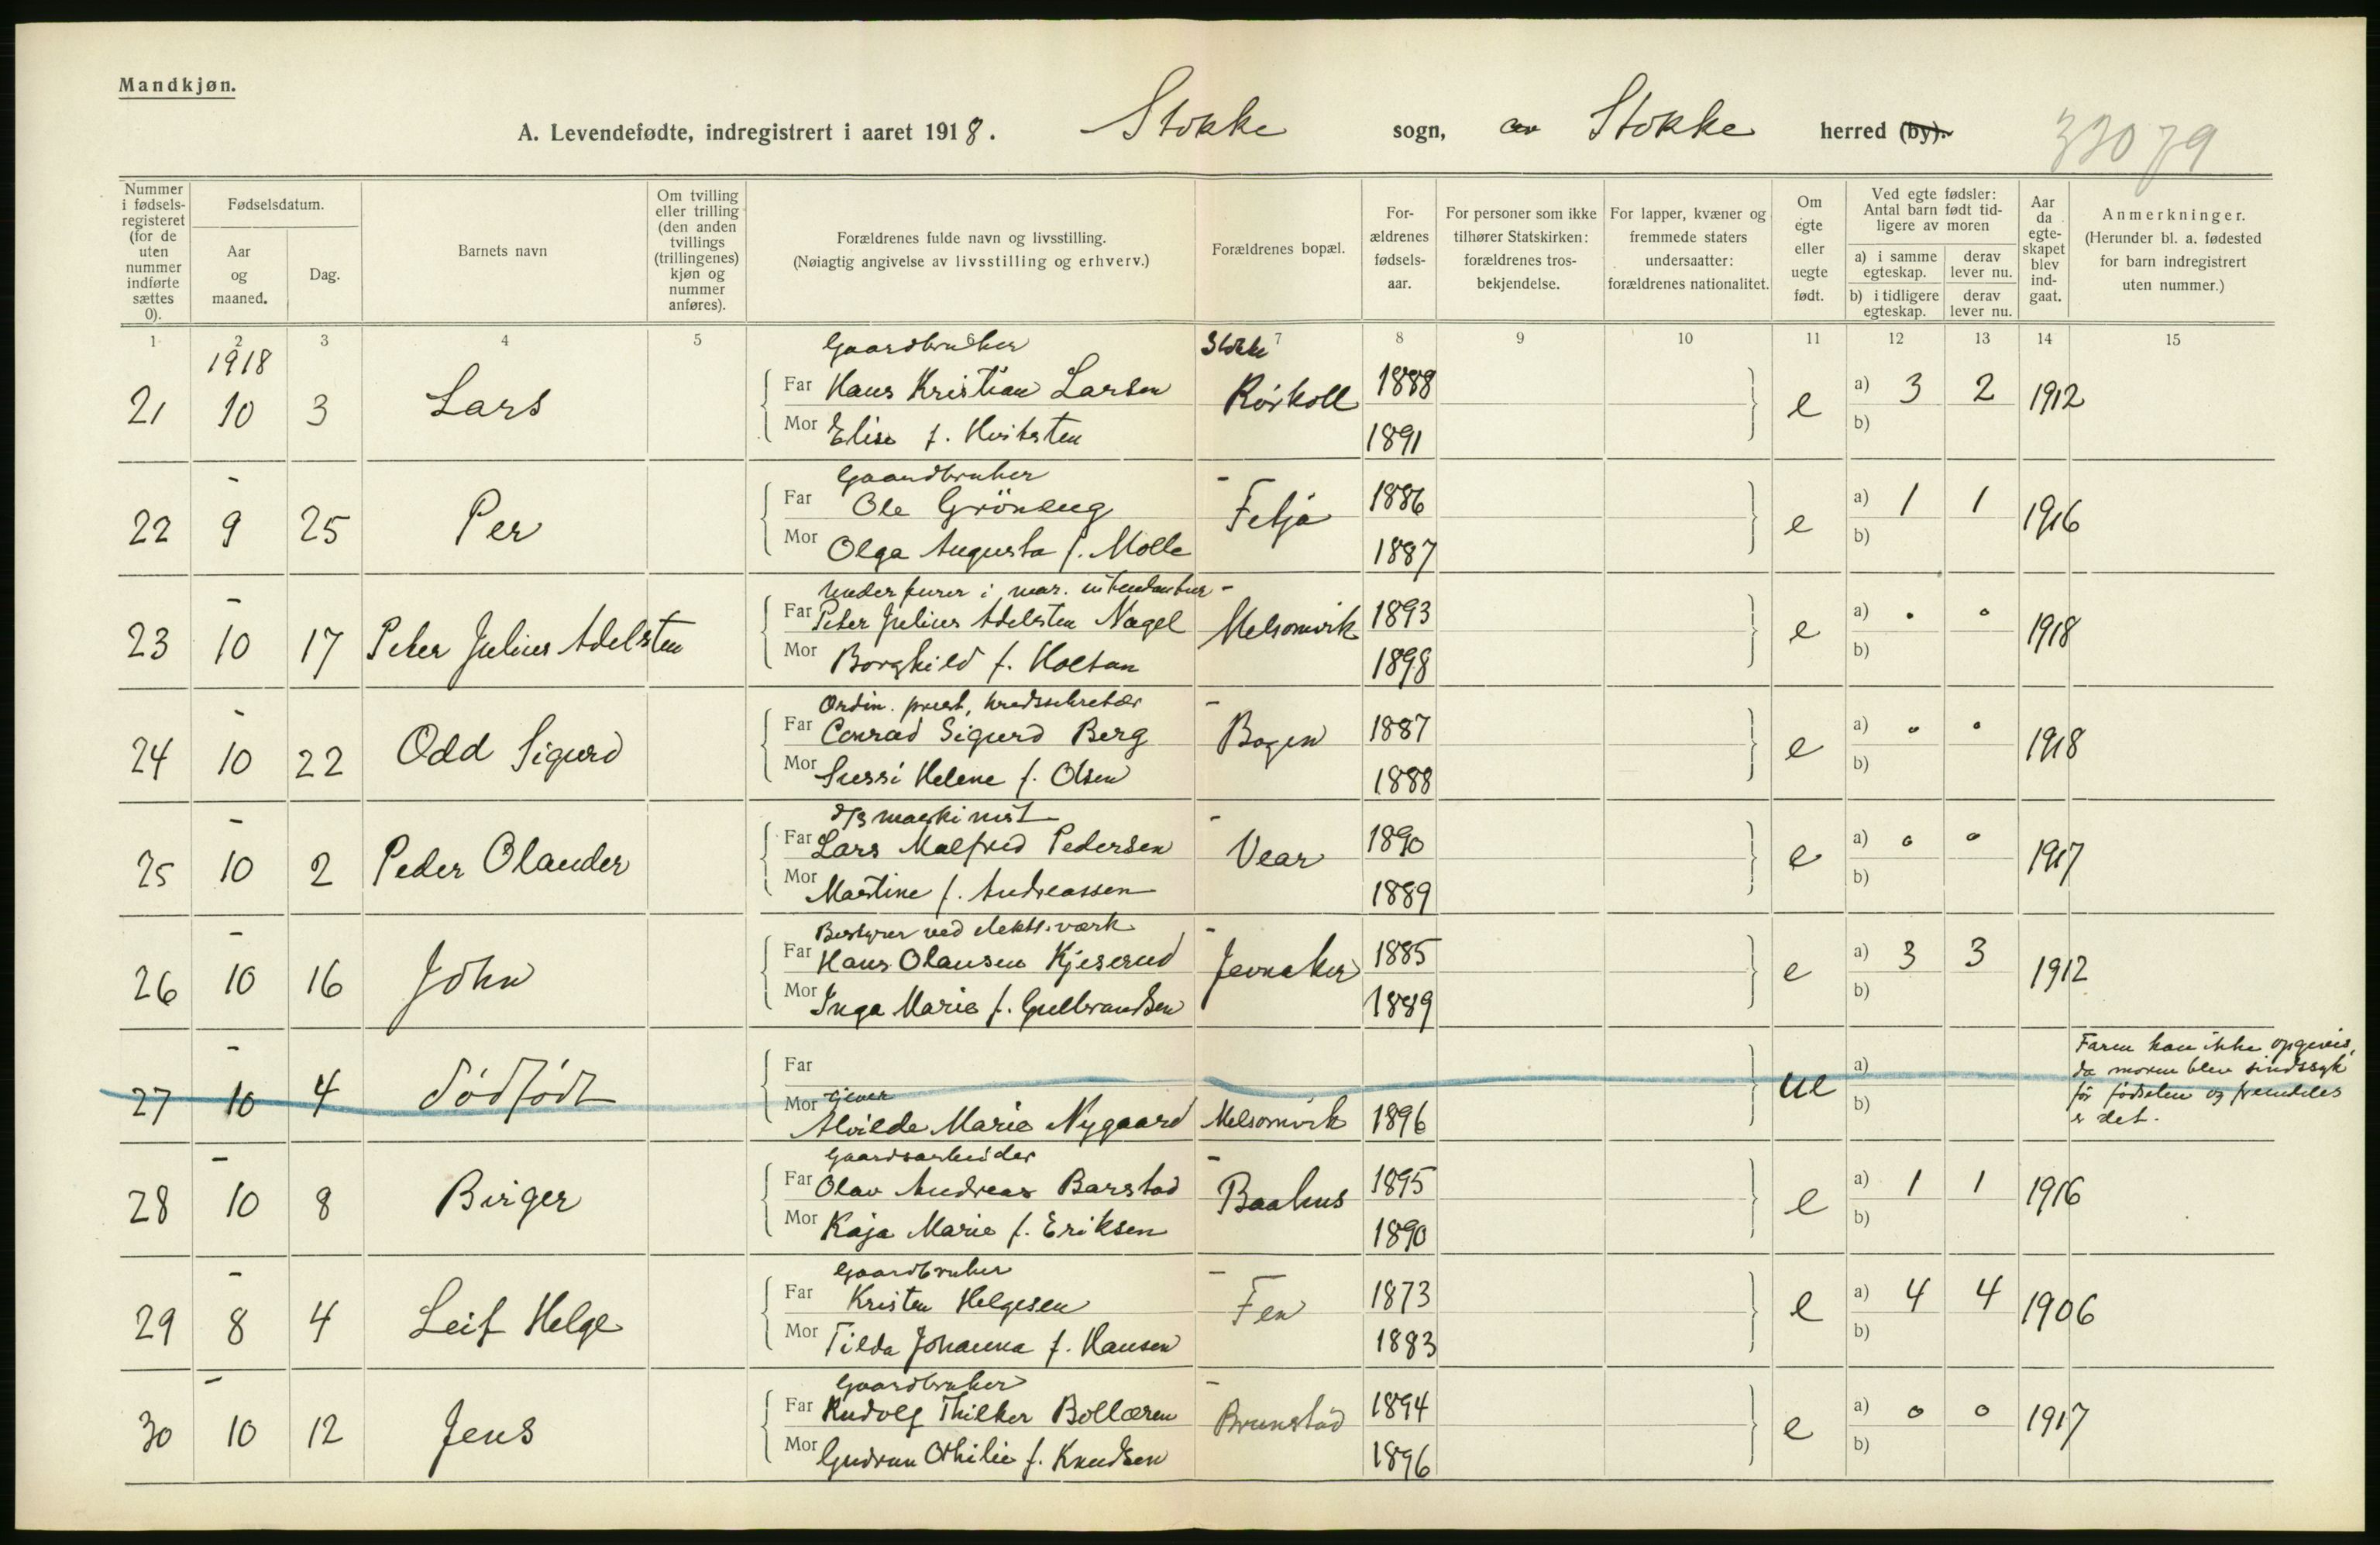 Mandkjøn.
A. Levendefødte, indregistrert i aaret 1918. Stokke sogn, av Stokke herred (by). 33079
Nummer i fødselsregisteret (for de uten nummer indførte sættes 0).
Fødselsdatum.
Aar og maaned.
Dag.
Barnets navn
Om tvilling eller trilling (den anden tvillings (trillingenes) kjøn og nummer anføres).
Forældrenes fulde navn og livsstilling.
(Nøiagtig angivelse av livsstilling og erhverv.)
Forældrenes bopæl.
Forældrenes fødselsaar.
For personer som ikke tilhører Statskirken: forældrenes trosbekjendelse.
For lapper, kvæner og fremmede staters undersaatter: forældrenes nationalitet.
Om egte eller uegte født.
Ved egte fødsler: Antal barn født tidligere av moren
a) i samme egteskap.
derav lever nu.
b) i tidligere egteskap.
derav lever nu.
Aar da egteskapet blev indgaat.
Anmerkninger.
(Herunder bl. a. fødested for barn indregistrert uten nummer.)
1 2 3 4 5 7 8 9 10 11 12 13 14 15
1918 Gaardbruker Stokke
21 10 3 Lars Far Hans Kristian Larsen Rørkoll 1888 e a) 3 2 1912
Mor Elise f. Hvitsten 1891 b)
- Gaardbruker -
22 9 25 Per Far Ole Grönseug Feljø 1886 e a) 1 1 1916
Mor Olga Augusta f. Molle 1887 b)
- Underfurer i mar. intendantur -
23 10 17 Peter Julius Adelsten Far Peter Julius Adelsten Nagel Melsomvik 1893 e a) 0 0 1918
Mor Borghild f. Holtan 1898 b)
- Ordin. prest, kredssekretær -
24 10 22 Odd Sigurd Far Conrad Sigurd Berg Bogen 1887 e a) 0 0 1918
Mor Sussi Helene f. Olsen 1888 b)
- d/s maskinist -
25 10 2 Peder Olander Far Lars Malfred Pedersen Vear 1890 e a) 0 0 1917
Mor Martine f. Andreassen 1889 b)
- Bestyrer ved elektr. værk -
26 10 16 John Far Hans Olausen Kjeserud Jevnaker 1885 e a) 3 3 1912
Mor Inga Marie f. Gulbrandsen 1889 b)
- Far
27 10 4 dødfødt Mor tjener Alvilde Marie Nygaard Melsomvik 1896 ue a) b)
Faren kan ikke opgives,
da moren blev sindssyk
før fødselen og fremdeles
er det.
- Gaardsarbeider -
28 10 8 Birger Far Olav Andreas Barstad Baahus 1895 e a) 1 1 1916
Mor Kaja Marie f. Eriksen 1890 b)
- Gaardbruker -
29 8 4 Leif Helge Far Kristen Helgesen Fen 1873 e a) 4 4 1906
Mor Tilda Johanna f. Hansen 1883 b)
- Gaardbruker -
30 10 12 Jens Far Rudolf Thilker Bollæren Brunstad 1894 e a) 0 0 1917
Mor Gudrun Othilie f. Knudsen 1896 b)